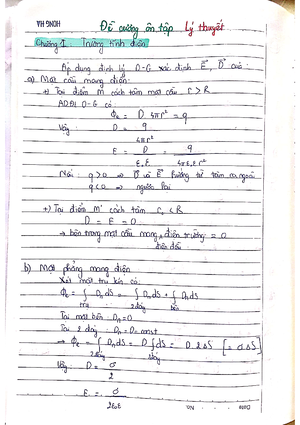 HONG HA
Đề cương ôn tập Lý thuyết
Chương I. Trường tĩnh điện
Áp dụng định lý O-G xác định E, D của:
a) Mặt cầu mang điện:
+) Tại điểm M cách tâm mặt cầu r > R
ADĐL O-G có:
Φe = D. 4πr² = q
Vậy: D = q / 4πr²
E = D / ε₀ε = q / 4πε₀εr²
Nếu: q > 0 ⇒ D và E hướng từ tâm ra ngoài
q < 0 ⇒ ngược lại
+) Tại điểm M' cách tâm r < R
D = E = 0
→ bên trong mặt cầu mang điện trường = 0
điện đều
b) Mặt phẳng mang điện
Xét mặt trụ kín có:
Φe = ∫ Dn dS = ∫ Dn dS + ∫ Dn dS
trụ 2 đáy bên
Tại mặt bên Dn = 0
Tại 2 đáy: Dn = D = const
→ Φe = ∫ Dn dS = D ∫ dS = D. 2 ΔS [= σ ΔS]
2 đáy 2 đáy
Vậy: D = σ / 2
E = σ / 2ε₀ε
Date No.